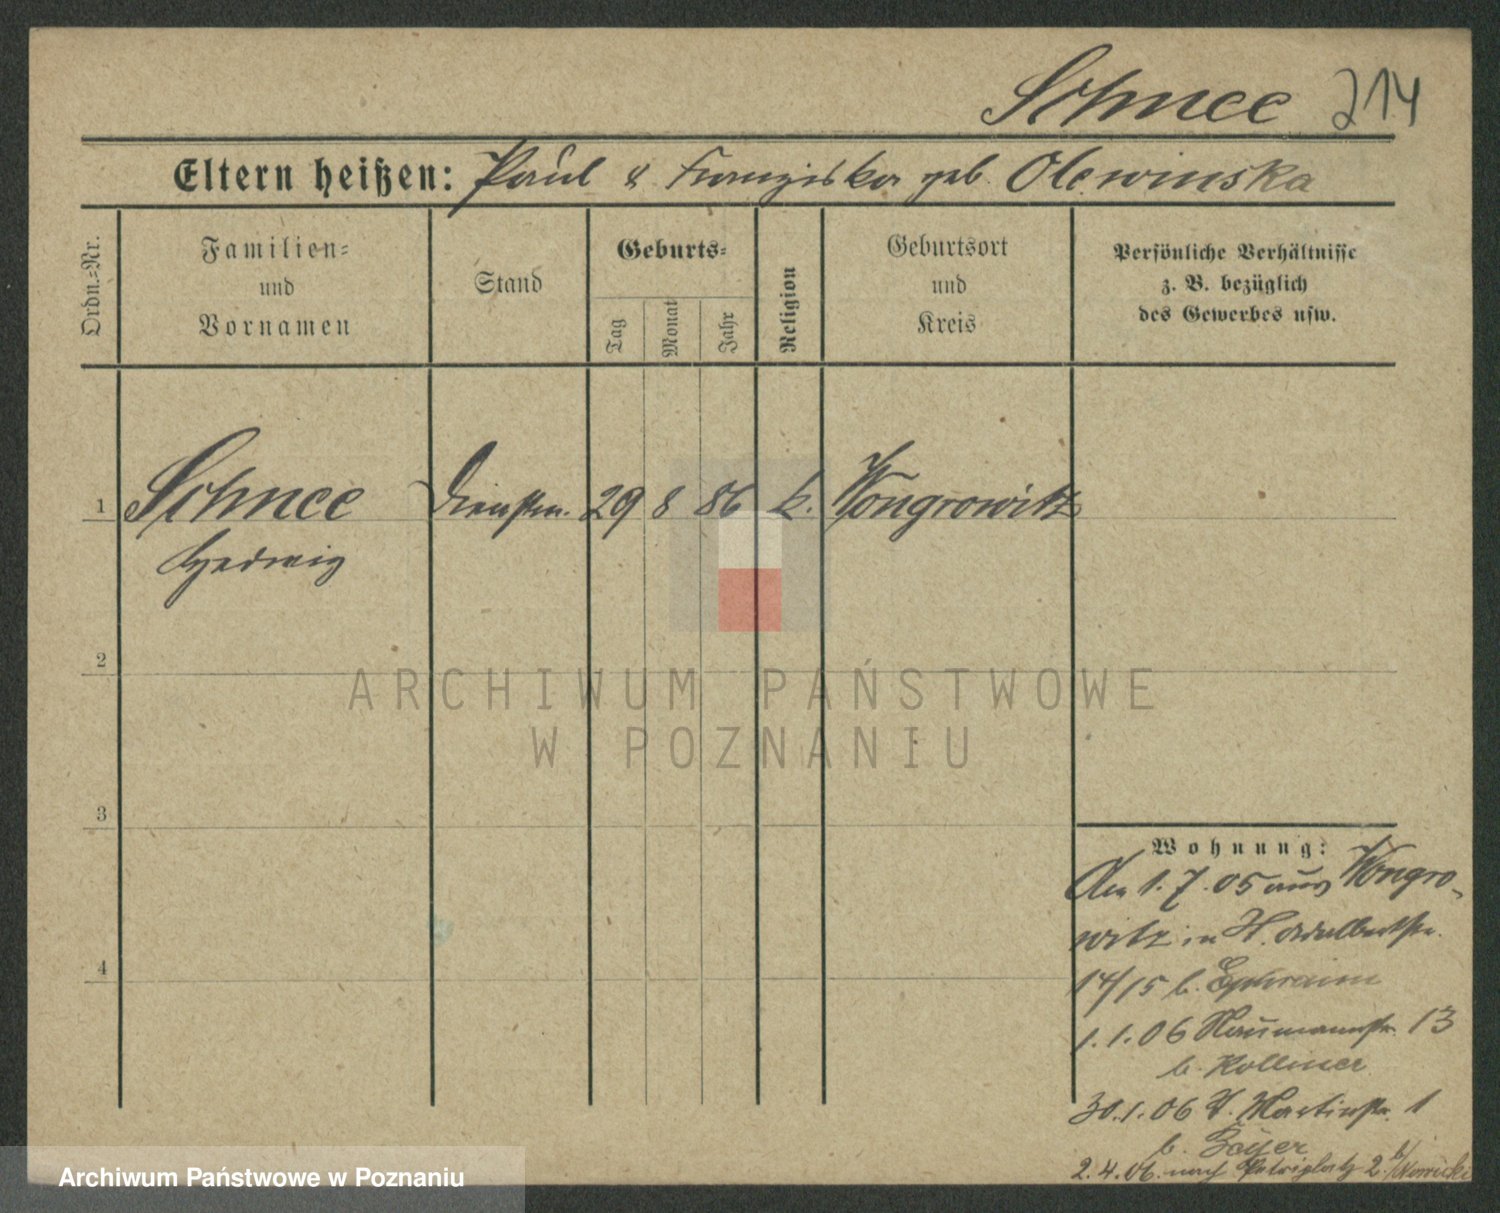 Schnee 214
Eltern heißen: Paul & Franziska geb. Olewinska
Ordn.=Nr.
Familien=
und
Vornamen
Stand
Geburts=
Tag
Monat
Jahr
Religion
Geburtsort
und
Kreis
Persönliche Verhältnisse
z. B. bezüglich
des Gewerbes usw.
1 Schnee Dienstm. 29 8 86 k. Wongrowitz
Hedwig
2
3
4
Wohnung:
Am 1.7.05 aus Wongro-
witz in St. Adalbertstr.
14/15 b. Ephraim
1.1.06 Naumannstr. 13
b. Kollmer
30.1.06 St. Martinstr. 1
b.
2.4.06. nach Petriplatz 2 b/Nowicki
ARCHIWUM PAŃSTWOWE
W POZNANIU
Archiwum Państwowe w Poznaniu